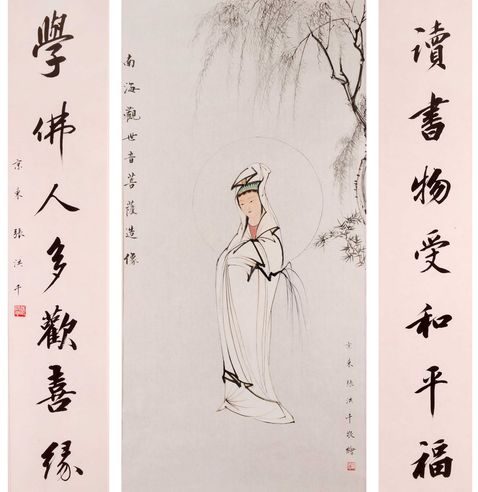 讀書物受和平福
南海觀世音菩薩造像
京東張洪千敬繪
學佛人多歡喜緣
京東張洪千